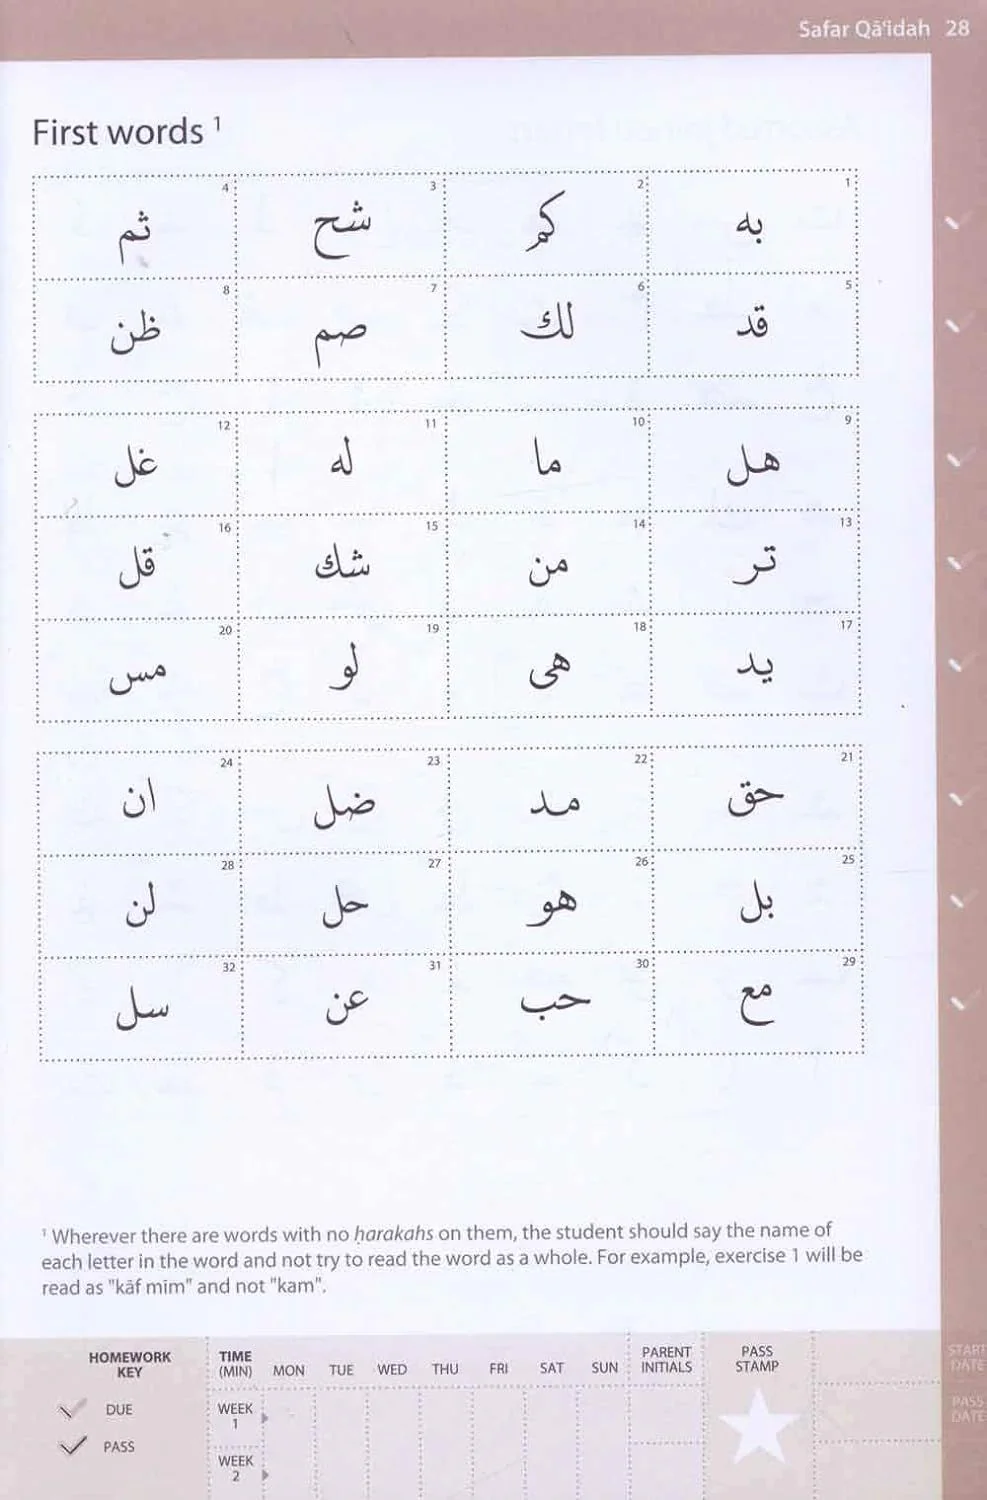 Safar Qā'idah 28
First words 1
1 به 2 كم 3 شح 4 ثم
5 قد 6 لك 7 صم 8 ظن
9 هل 10 ما 11 له 12 غل
13 تر 14 من 15 شك 16 قل
17 يد 18 هى 19 لو 20 مس
21 حق 22 مد 23 ضل 24 ان
25 بل 26 هو 27 حل 28 لن
29 مع 30 حب 31 عن 32 سل
1 Wherever there are words with no ḥarakahs on them, the student should say the name of
each letter in the word and not try to read the word as a whole. For example, exercise 1 will be
read as "kāf mīm" and not "kam".
HOMEWORK KEY
DUE
PASS
TIME (MIN) MON TUE WED THU FRI SAT SUN PARENT INITIALS PASS STAMP
WEEK 1
WEEK 2
START DATE
PASS DATE